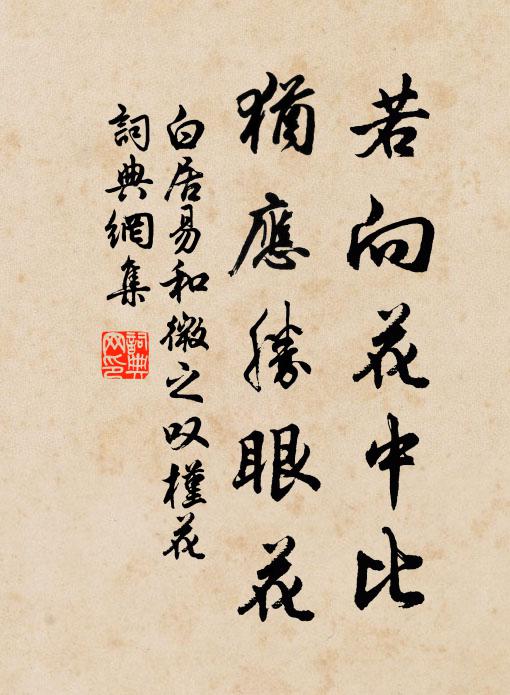 若向花中比
猶應勝眼花
白居易和微之叹槿花
詞典網集
詞典网印